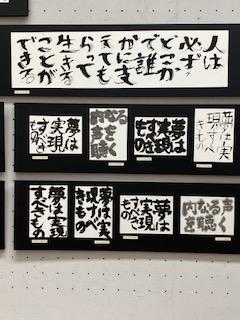 人は
必ず
どこか
で誰
かに支
えても
らって
生きる
ことが
できる
夢は
実現
すべき
もの
内なる
声
を聴く
夢は
実現
すべき
もの
夢は実
現すべ
きもの
夢は
実現
すべき
もの
夢は実
現すべ
きもの
夢は
実現
すべき
もの
内なる声
を聴く